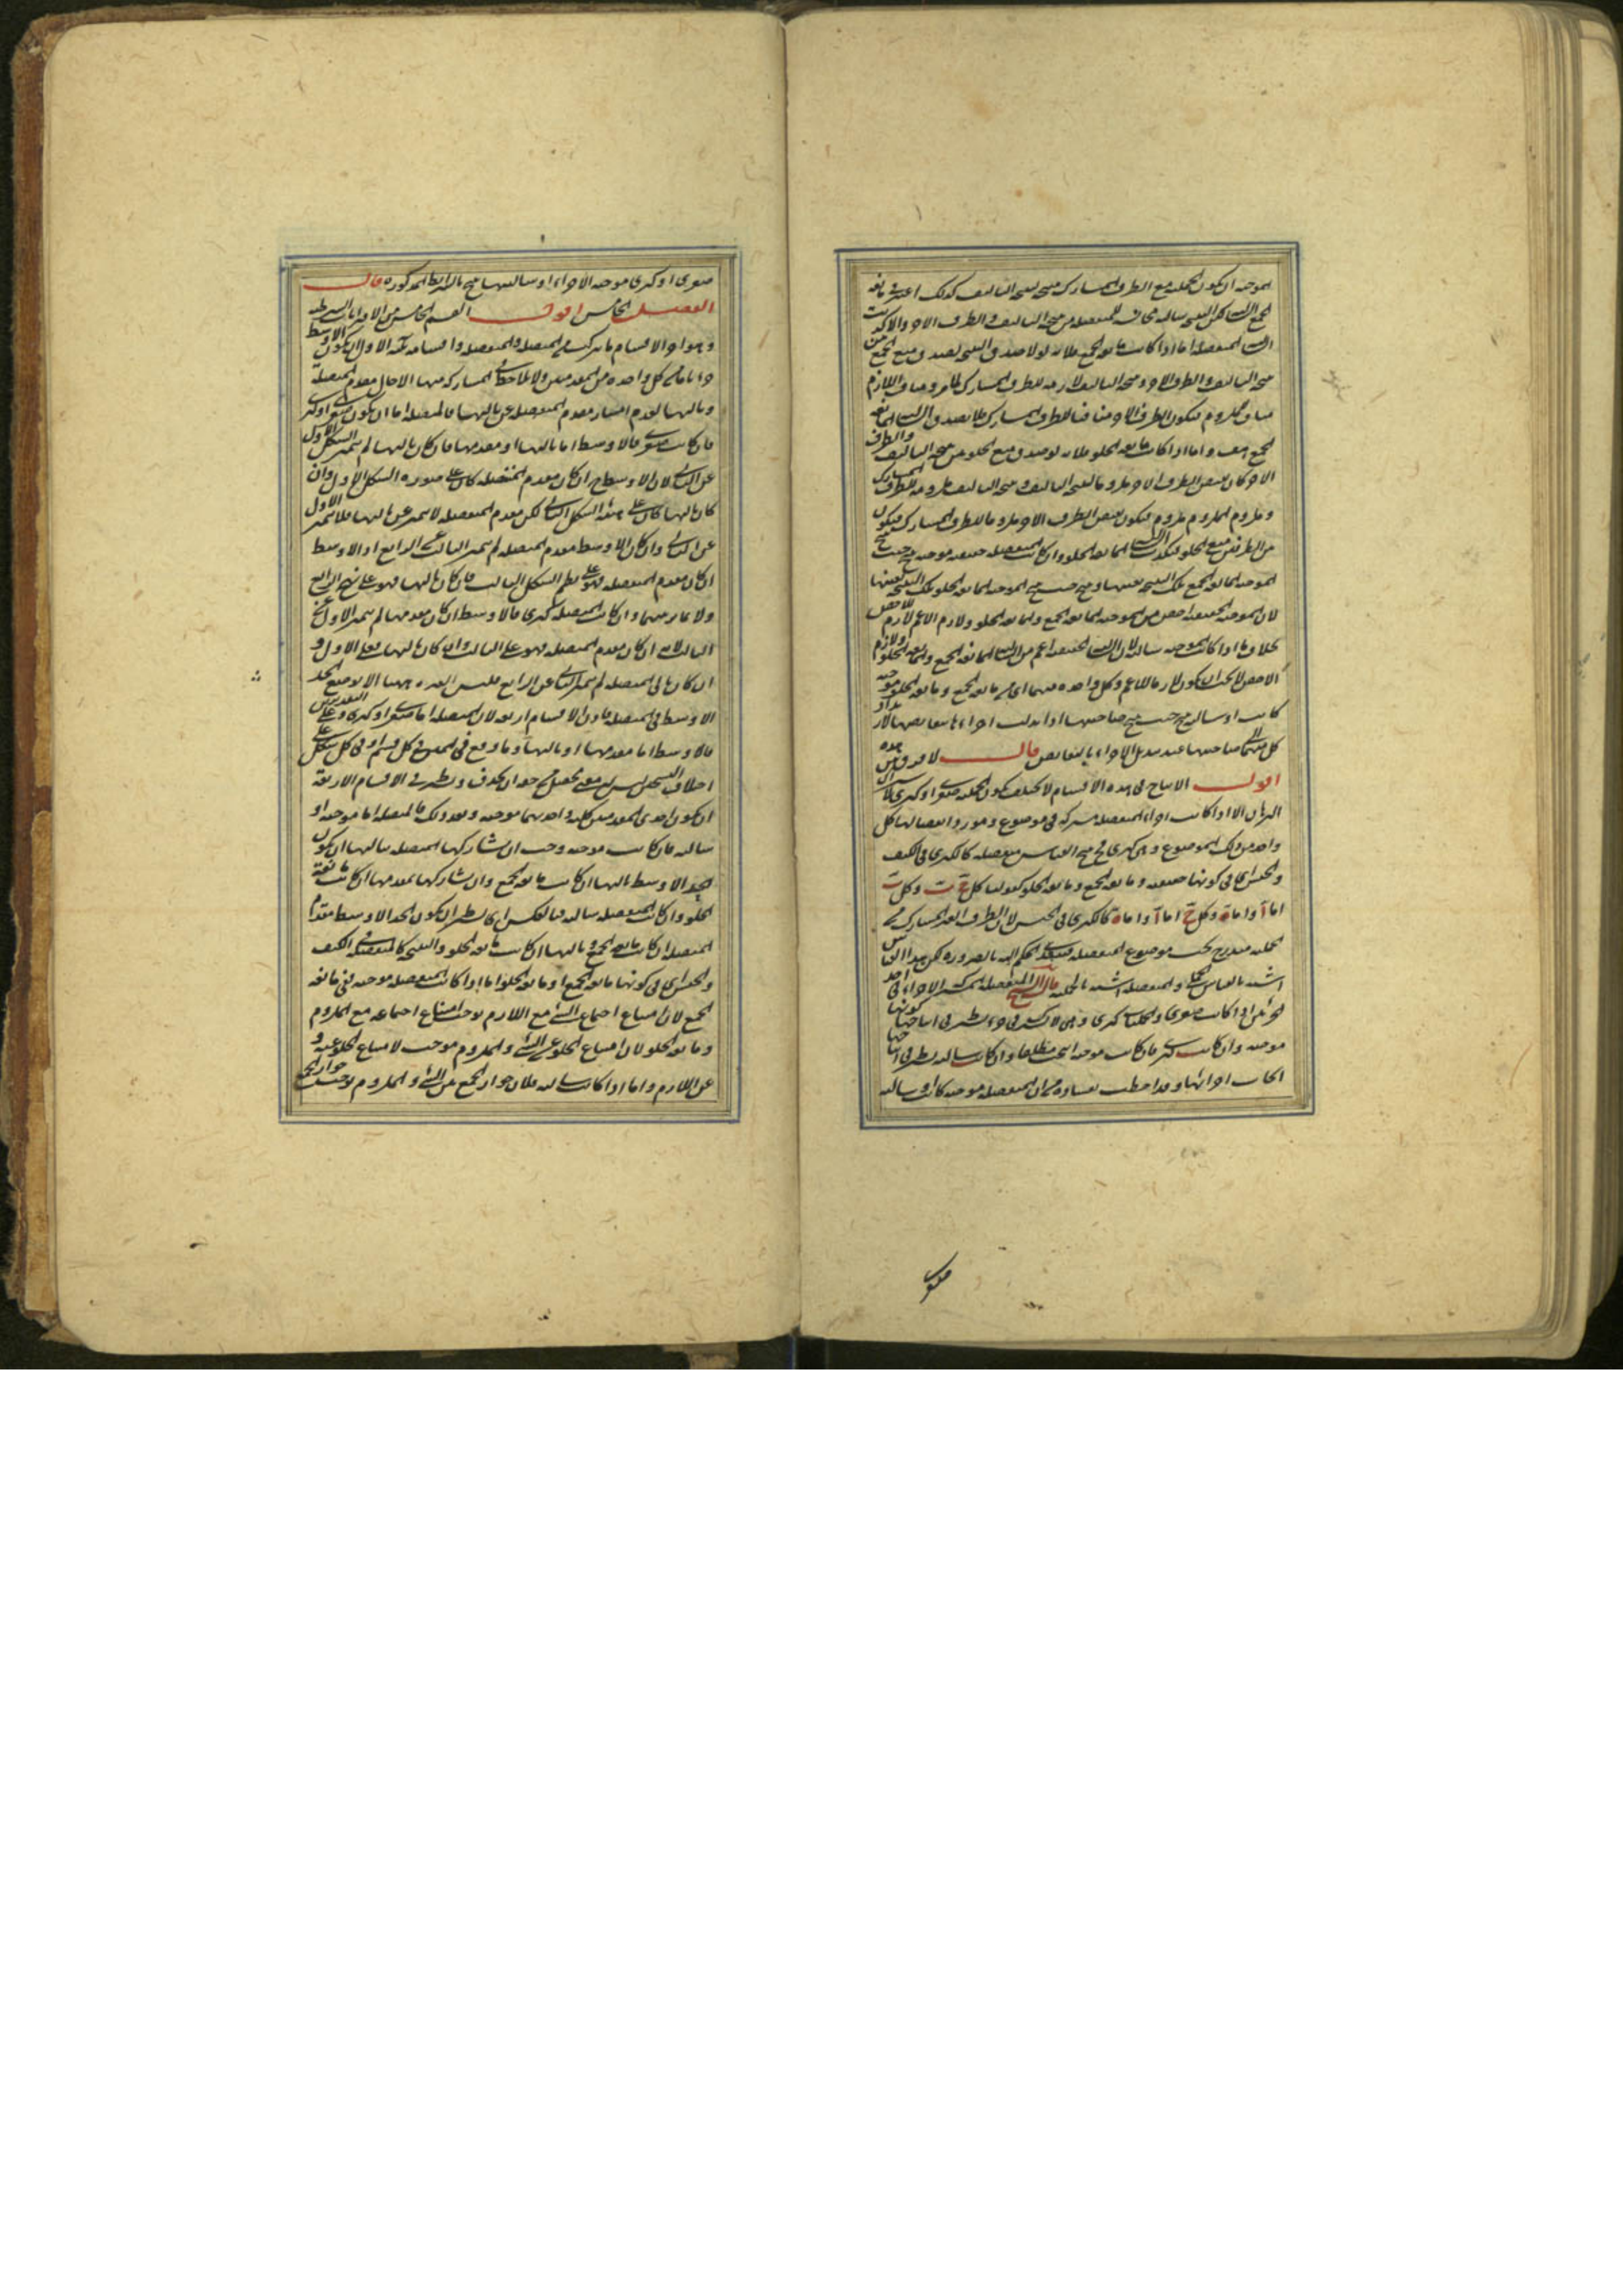 الموجبة ان يكون الحملية مع الطرف المشارك منتجة لنتيجة التاليف كذلك اعتبر في مانعة
الجمع السالبة لكن النتيجة سالبة مانعة من نتيجة التاليف والطرف الاخر والاكذبت
السالبة المنفصلة اما اذا كانت مانعة الجمع فلانه لولا صدق النتيجة لصدق منع الجمع من
نتيجة التاليف والطرف الاخر ونتيجة التاليف لازمة للطرف المشارك ومنافي اللازم
مناف للملزوم فيكون الطرف الاخر منافيا للطرف المشارك فلا يصدق السالبة المانعة
الجمع هف واما اذا كانت مانعة الخلو فلانه لو صدق منع الخلو من نتيجة التاليف والطرف
الاخر كان نقيض الطرف الاخر ملزوما لنتيجة التاليف ونتيجة التاليف ملزومة للطرف المشارك
وملزوم الملزوم ملزوم فيكون نقيض الطرف الاخر ملزوما للطرف المشارك فيكون
بين الطرفين منع الخلو فيكذب السالبة المانعة الخلو وان كانت المنفصلة حقيقية موجبة ينتج حيث ينتج
الموجبة المانعة الجمع تلك النتيجة بعينها وينتج حيث ينتج الموجبة المانعة الخلو تلك النتيجة بعينها
لان الموجبة الحقيقية اخص من الموجبة المانعة الجمع والمانعة الخلو ولازم الاعم لازم الاخص
بخلاف ما اذا كانت الحقيقية سالبة لان السالبة الحقيقية اعم من السالبة المانعة الجمع والمانعة الخلو ولازم
الاخص لا يجب ان يكون لازما للاعم وكل واحدة منهما اي من مانعة الجمع ومانعة الخلو موجبة
كانت او سالبة ينتج حيث ينتج صاحبتها اذا بدلت اجزاءها بنقايضها لارتداد
كل منهما الى صاحبتها عند تبديل الاجزاء بالنقايض قال لا فرق بين هذه
اقول الانتاج في هذه الاقسام لا يختلف بكون الحملية صغرى او كبرى
البرهان الا اذا كانت اجزاء المنفصلة مشتركة في موضوع ومورد انفصالها كل
واحد من ذلك الموضوع وهي كبرى فح ينتج القياس منفصلة كالكبرى في الكيف
والجنس اي في كونها حقيقية ومانعة الجمع ومانعة الخلو كقولنا كل ج ب وكل ب
اما آ واما ه وكل ج اما آ واما ه كالكبرى في الجنس لان الطرف الغير المشارك من
الحملية مندرج تحت موضوع المنفصلة فيتعدى الحكم اليه بالضرورة لكن هذا القياس
اشبه بالقياس الحملي والمنفصلة اشبه بالحملية قال الشيخ المنفصلة المشتركة الاجزاء في احد
الجزئين اذا كانت صغرى والحمليات كبرى وهي لا تشترك في جزء يشترط في انتاجها كونها
موجبة وان كانت كبرى فان كانت موجبة انتجت مطلقا وان كانت سالبة يشترط في انتاجها
ايجاب اجزائها وقد احطت بفساده من ان المنفصلة موجبة كانت او سالبة
صغرى
صغرى او كبرى موجبة الاجزاء او سالبتها ينتج بالشرايط المذكورة قال
الفصل الخامس اقول القسم الخامس من الاقترانات الشرطية
وهو اخر الاقسام ما يتركب من المتصلة والمنفصلة واقسامه ثلثة الاول ان يكون الاوسط
جزءا تاما من كل واحدة من المقدمتين ولا يلاحظ في المشاركة منها الا حال مقدم المتصلة
وتاليها لعدم امتياز مقدم المنفصلة عن تاليها فالمتصلة اما ان يكون صغرى او كبرى
فان كانت صغرى فالاوسط اما تاليها او مقدمها فان كان تاليها لم يتميز الشكل الاول
عن الثاني لان الاوسط ح ان كان مقدم المنفصلة كان على صورة الشكل الاول وان
كان تاليها كان على هيئة الشكل الثاني لكن مقدم المنفصلة لا يتميز عن تاليها فلا يتميز الاول
عن الثاني وان كان الاوسط مقدم المتصلة لم يتميز الثالث عن الرابع اذ الاوسط
ان كان مقدم المنفصلة فهو على نظم الشكل الثالث وان كان تاليها فهو على نهج الرابع
ولا تمايز بينهما وان كانت المتصلة كبرى فالاوسط ان كان مقدمها لم يتميز الاول عن
الثالث لانه ان كان مقدم المنفصلة فهو على الثالث وان كان تاليها فعلى الاول و
ان كان تالي المتصلة لم يتميز الثاني عن الرابع فليس العبرة ههنا الا بوضع الحد
الاوسط في المتصلة فاذن الاقسام اربعة لان المتصلة اما صغرى او كبرى وعلى التقديرين
فالاوسط اما مقدمها او تاليها وما وقع في بعض كل قسم او في كل شكل على
اختلاف النسختين ليس له معنى محصل بل يجب ان يحذف ويشترط في الاقسام الاربعة
ان يكون احدى المقدمتين كلية واحديهما موجبة وبعد ذلك فالمتصلة اما موجبة او
سالبة فان كانت موجبة وجب ان شاركها المنفصلة بتاليها ان يكون
الحد الاوسط تاليها ان كانت مانعة الجمع وان شاركها بمقدمها ان كانت مانعة
الخلو وان كانت المتصلة سالبة فبالعكس اي كان يشترط ان يكون الحد الاوسط مقدم
المتصلة ان كانت مانعة الجمع وتاليها ان كانت مانعة الخلو والنتيجة كالمنفصلة في الكيف
والجنس اي في كونها مانعة الجمع او مانعة الخلو اما اذا كانت المتصلة موجبة ففي مانعة
الجمع لان امتناع اجتماع الشيء مع اللازم يوجب امتناع اجتماعه مع الملزوم
ومانعة الخلو لان امتناع الخلو عن الشيء والملزوم موجب لامتناع الخلو عنه و
عن اللازم واما اذا كانت سالبة فلان جواز الجمع بين الشيء والملزوم يوجب جواز الجمع